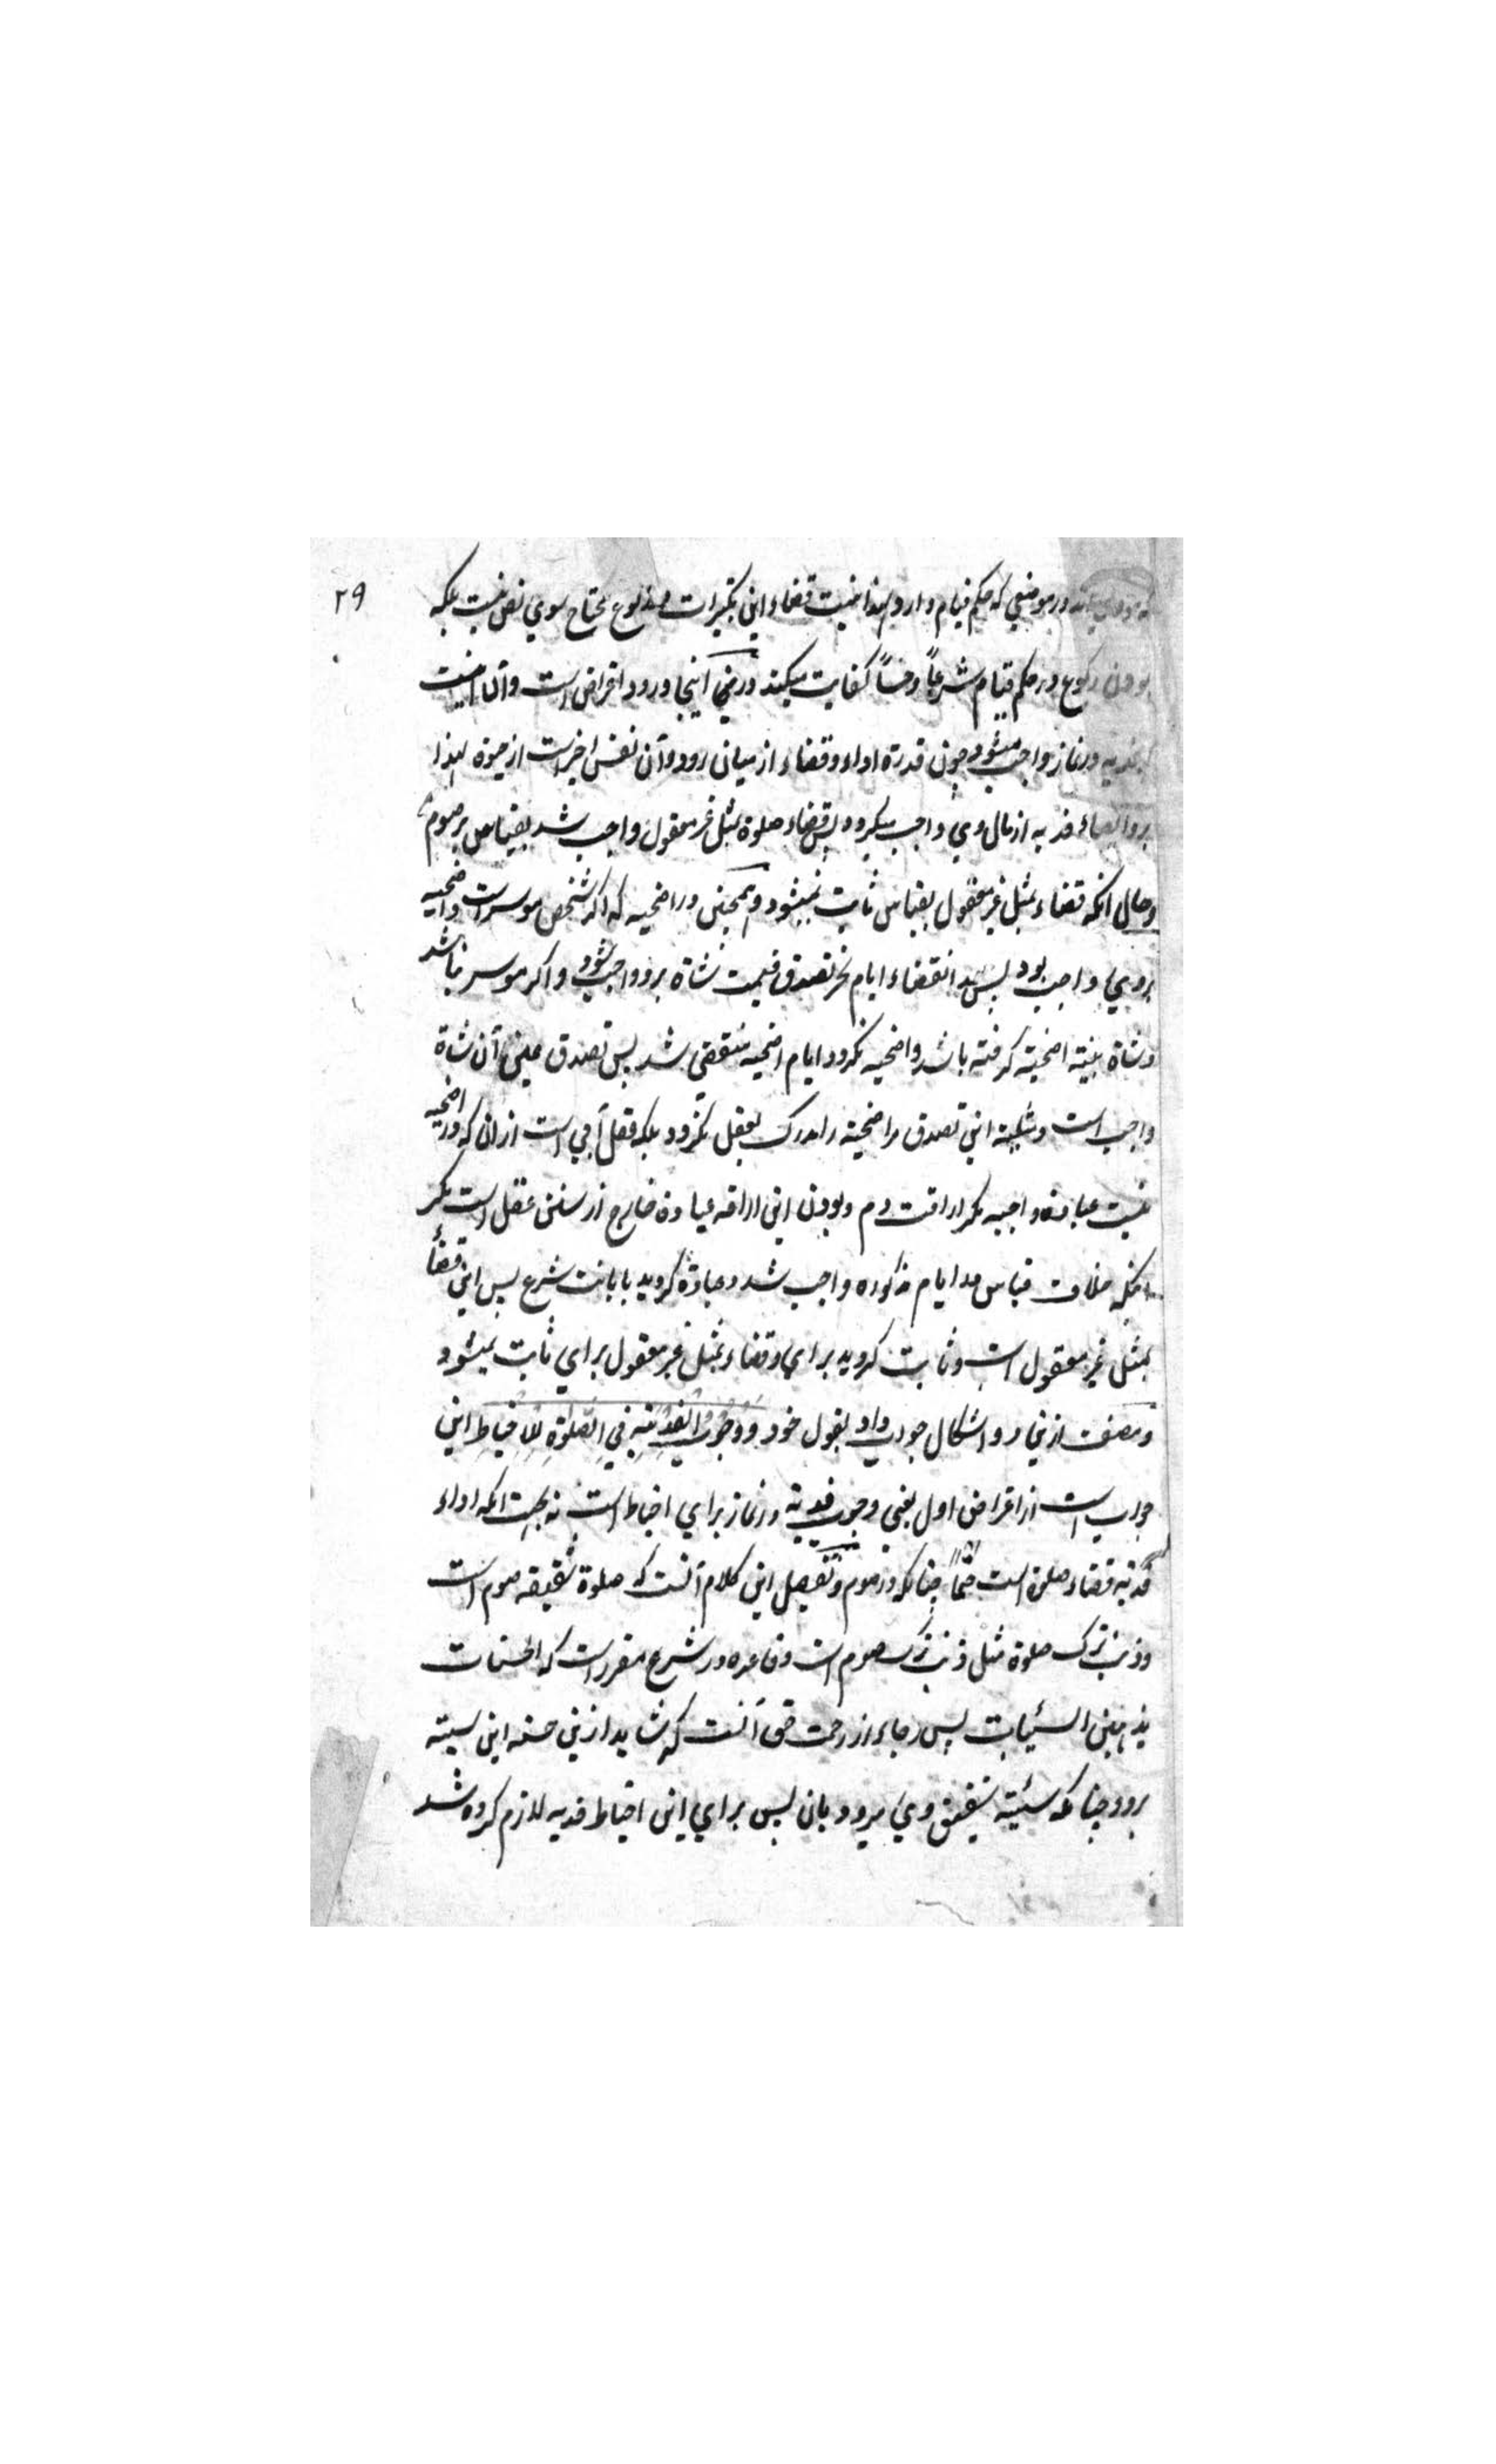 ۲۹
در موضعی که حکم قیام دارد لهذا نیست قضاء این تکبیرات در رکوع محتاج سوی نص نیست بلکه
بودن رکوع در حکم قیام شرعاً و حساً کفایت میکند درین اینجا ورود اعتراض است و آن اینست
فدیه در نماز واجب میشود چون قدرة اداء و قضاء از میان رود و آن نفس اخیر است از حیوة لهذا
بر و ایصاء فدیه از مال وی واجب میگردد پس قضاء صلوة بمثل غیر معقول واجب شد بقیاس بر صوم
و حال انکه قضاء بمثل غیر معقول بقیاس ثابت نمیشود و همچنین در اضحیه که اگر شخص موسر است و اضحیه
بروی واجب بود پس بعد انقضاء ایام نحر تصدق قیمت شاة برو واجب شود و اگر موسر نباشد
و شاة بنیته اضحیته گرفته باشد و اضحیه نکرد و ایام اضحیه منقضی شد پس تصدق عین آن شاة
واجب است و مثلیته این تصدق مر اضحیته را مدرک بعقل نگردد بلکه عقل آبی است از ان که در اضحیه
نیست عبادة واجبه مگر اراقت دم و بودن این اراقه عبادة خارج از سنن عقل است مگر
انکه خلاف قیاس در ایام مذکوره واجب شد و عبادة گردید بابانت شرع پس این قضاً
بمثل غیر معقول است و ثابت گردید برای و قضاء بمثل غیر معقول برای ثابت نمیشود
و مصنف ازین دو اشکال جواب داد بقول خود وَوُجُوبُ الْفِدْيَةِ فِي الصَّلٰوةِ لِلْاِحْتِيَاطِ این
جواب است از اعتراض اول یعنی وجوب فدیه در نماز برای احتیاط است نه بجهت انکه اداء
فدیه قضاء صلوة است حتماً چنانکه در صوم و تفصیل این کلام آنست که صلوة شقیقه صوم است
و ذنب ترک صلوة مثل ذنب ترک صوم است و قاعده در شرع مقرر است که الحسنات
یذهبن السیئات پس رجاء از رحمت حق آنست که شاید ازین حسنه این سیئه
برود چنانکه سیئته شقیق وی میرود بان پس برای این احتیاط فدیه لازم کرده شد